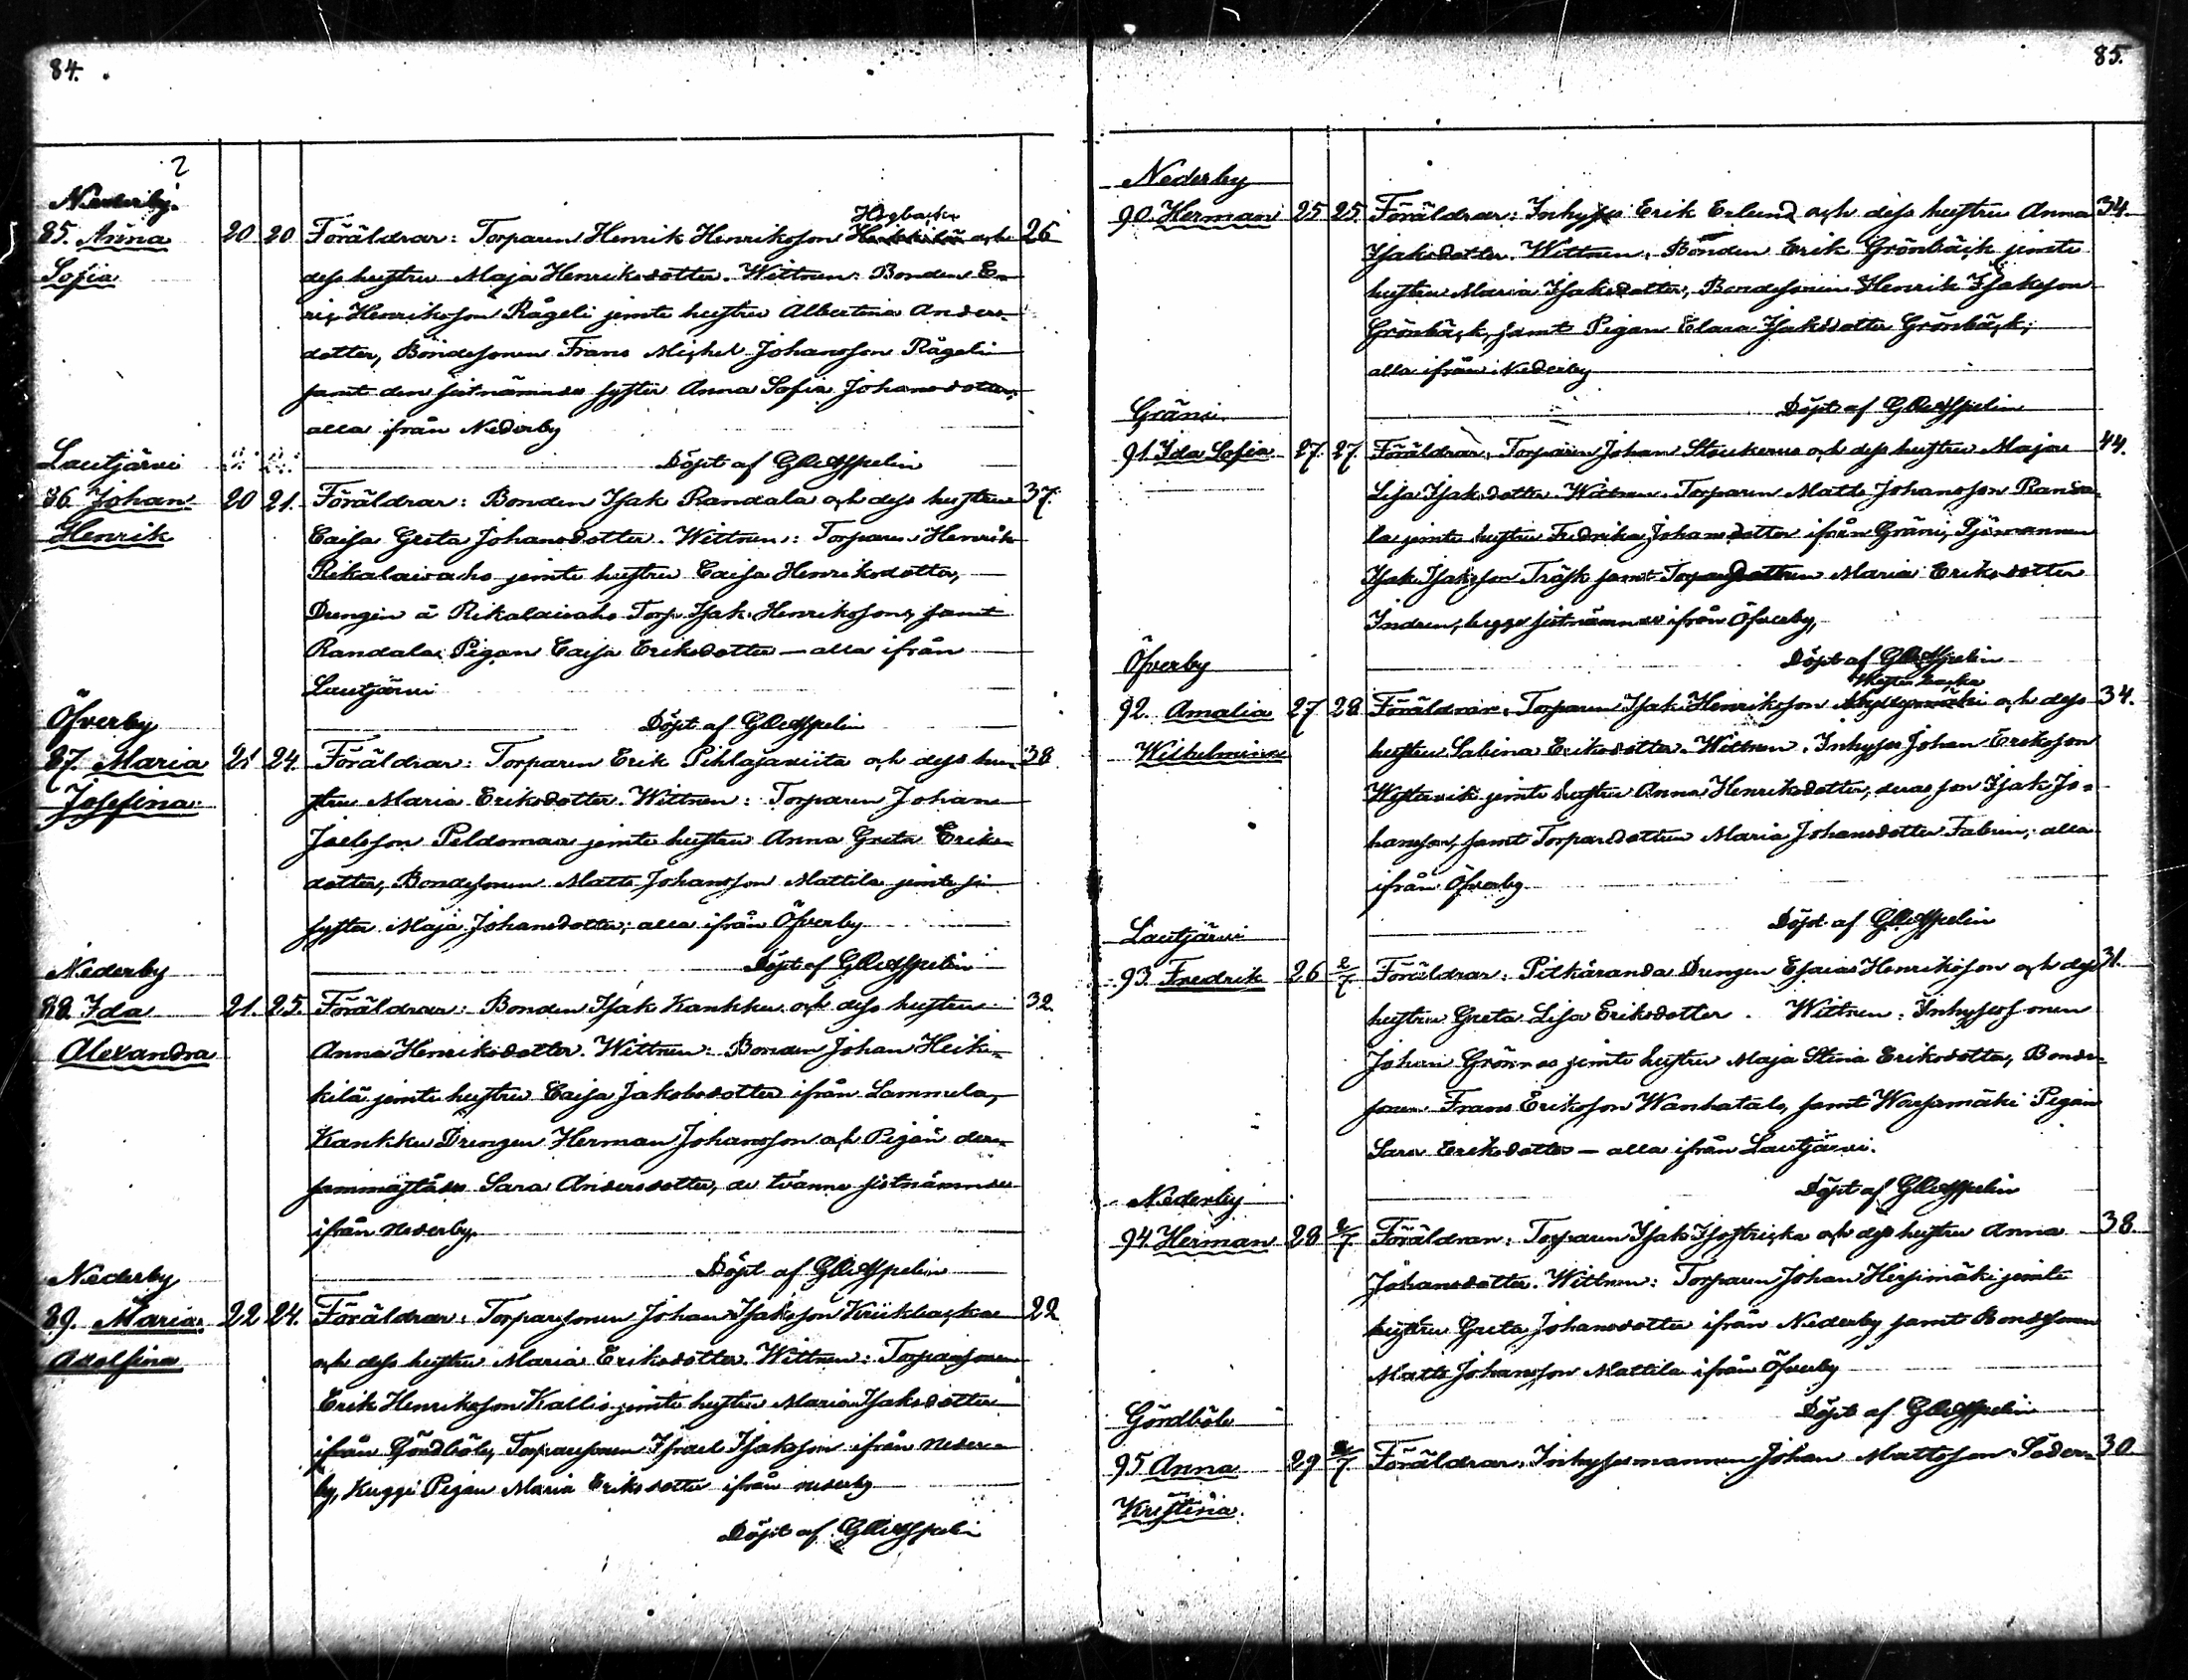 84.
Nederby
85. Anna 20 20 Föräldrar: Torparen Henrik Henriksson Högbacka och 26
Sofia dess hustru Maja Henriksdotter. Wittnen: Bonden E-
ric Henriksson Rågeli jemte hustru Albertina Anders-
dotter, Bondesonen Frans Michel Johansson Rågeli
samt den sistnämndes syster Anna Sofia Johansdotter,
alla ifrån Nederby
Lautjärvi Döpt af G Asspelin
86. Johan 20 21. Föräldrar: Bonden Isak Randala och dess hustru 37.
Henrik Caisa Greta Johansdotter. Wittnen: Torparen Henrik
Rikalaivaho jemte hustru Caisa Henriksdotter,
Drengen å Rikalaivaho Torp Isak Henriksson, samt
Randala Pigan Caisa Eriksdotter — alla ifrån
Lautjärvi
Öfverby Döpt af G Asspelin
87. Maria 21 24. Föräldrar: Torparen Erik Pihlajaniita och dess hu- 38
Josefina stru Maria Eriksdotter. Wittnen: Torparen Johan
Joelsson Peldomaa jemte hustru Anna Greta Eriks-
dotter, Bondesonen Matts Johansson Mattila jemte si
syster Maja Johansdotter; alla ifrån Öfverby
Nederby Döpt af G Asspelin
88. Ida 21. 25. Föräldrar: Bonden Isak Kankku och dess hustru 32.
Alexandra Anna Henriksdotter. Wittnen: Bonden Johan Heik-
kilä jemte hustru Caisa Jakobsdotter ifrån Lammela,
Kankku Drengen Herman Johansson och Pigan der-
sammastädes Sara Andersdotter, de tvänne sistnämnde
ifrån Nederby.
Nederby Döpt af G Asspelin
89. Maria 22 24. Föräldrar: Torparesonen Johan Isaksson Kriikbacka 22
Adolfina och dess hustru Maria Eriksdotter. Wittnen: Torparesonen
Erik Henriksson Kallio jemte hustru Maria Isaksdotter
ifrån Gördböle, Torparesonen Israel Isaksson ifrån Neder-
by, Kuggi Pigan Maria Eriksdotter ifrån Nederby
Döpt af G Asspelin
85.
Nederby
90. Herman 25 25. Föräldrar: Inhyses Erik Erlund och dess hustru Anna 34
Isaksdotter. Wittnen: Bonden Erik Grönbäck jemte
hustru Maria Isaksdotter, Bondesonen Henrik Isaksson
Grönbäck, samt Pigan Clara Isaksdotter Grönbäck;
alla ifrån Nederby
Gräni Döpt af G Asspelin
91. Ida Sofia 27. 27. Föräldrar: Torparen Johan Stenkerus och dess hustru Maja 44.
Lisa Isaksdotter. Wittnen: Torparen Matts Johansson Randa-
la jemte hustru Fredrika Johansdotter ifrån Gräni, Sjömannen
Isak Isaksson Träsk samt Torparedottren Maria Eriksdotter
Indren, begge sistnämnde ifrån Öfverby,
Öfverby Döpt af G Asspelin
92. Amalia 27 28 Föräldrar: Torparen Isak Henriksson Westerbacka och dess 34.
Wilhelmina hustru Sabina Eriksdotter. Wittnen: Inhyses Johan Eriksson
Westervik jemte hustru Anna Henriksdotter, deras son Isak Jo-
hansson, samt Torparedottren Maria Johansdotter Fabrin, alla
ifrån Öfverby
Lautjärvi Döpt af G Asspelin
93. Fredrik 26 2/7 Föräldrar: Pitkäranda Drengen Esaias Henriksson och dess 31.
hustru Greta Lisa Eriksdotter. Wittnen: Inhysessonen
Johan Grönroos jemte hustru Maja Stina Eriksdotter, Bonde-
sonen Frans Eriksson Wanhatalo, samt Warpamäki Pigan
Sara Eriksdotter — alla ifrån Lautjärvi.
Nederby Döpt af G Asspelin
94. Herman 28 2/7 Föräldrar: Torparen Isak Isostricka och dess hustru Anna 38
Johansdotter. Wittnen: Torparen Johan Hirsimäki jemte
hustru Greta Johansdotter ifrån Nederby samt Bondesonen
Matts Johansson Mattila ifrån Öfverby
Gördböle Döpt af G Asspelin
95. Anna 29 2/7 Föräldrar: Inhysesmannen Johan Mattsson Söder- 30
Kristina.